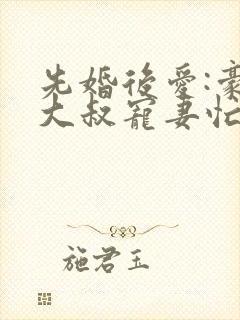 先婚後愛:豪
大叔寵妻忙
施君玉